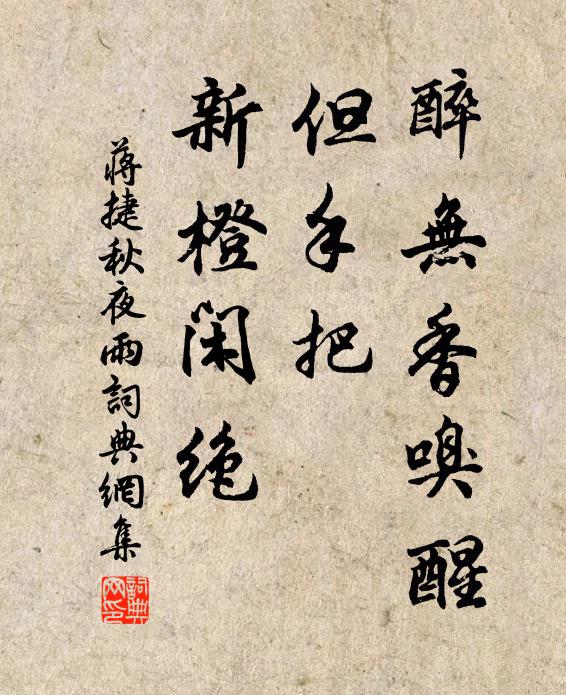 醉無香嗅醒
但手把
新橙闲绝
蔣捷秋夜雨詞典網集
詞典網印